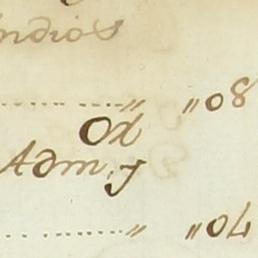 ndios
........ „ „ 08
Od
Adm. y
........ „ „ 04